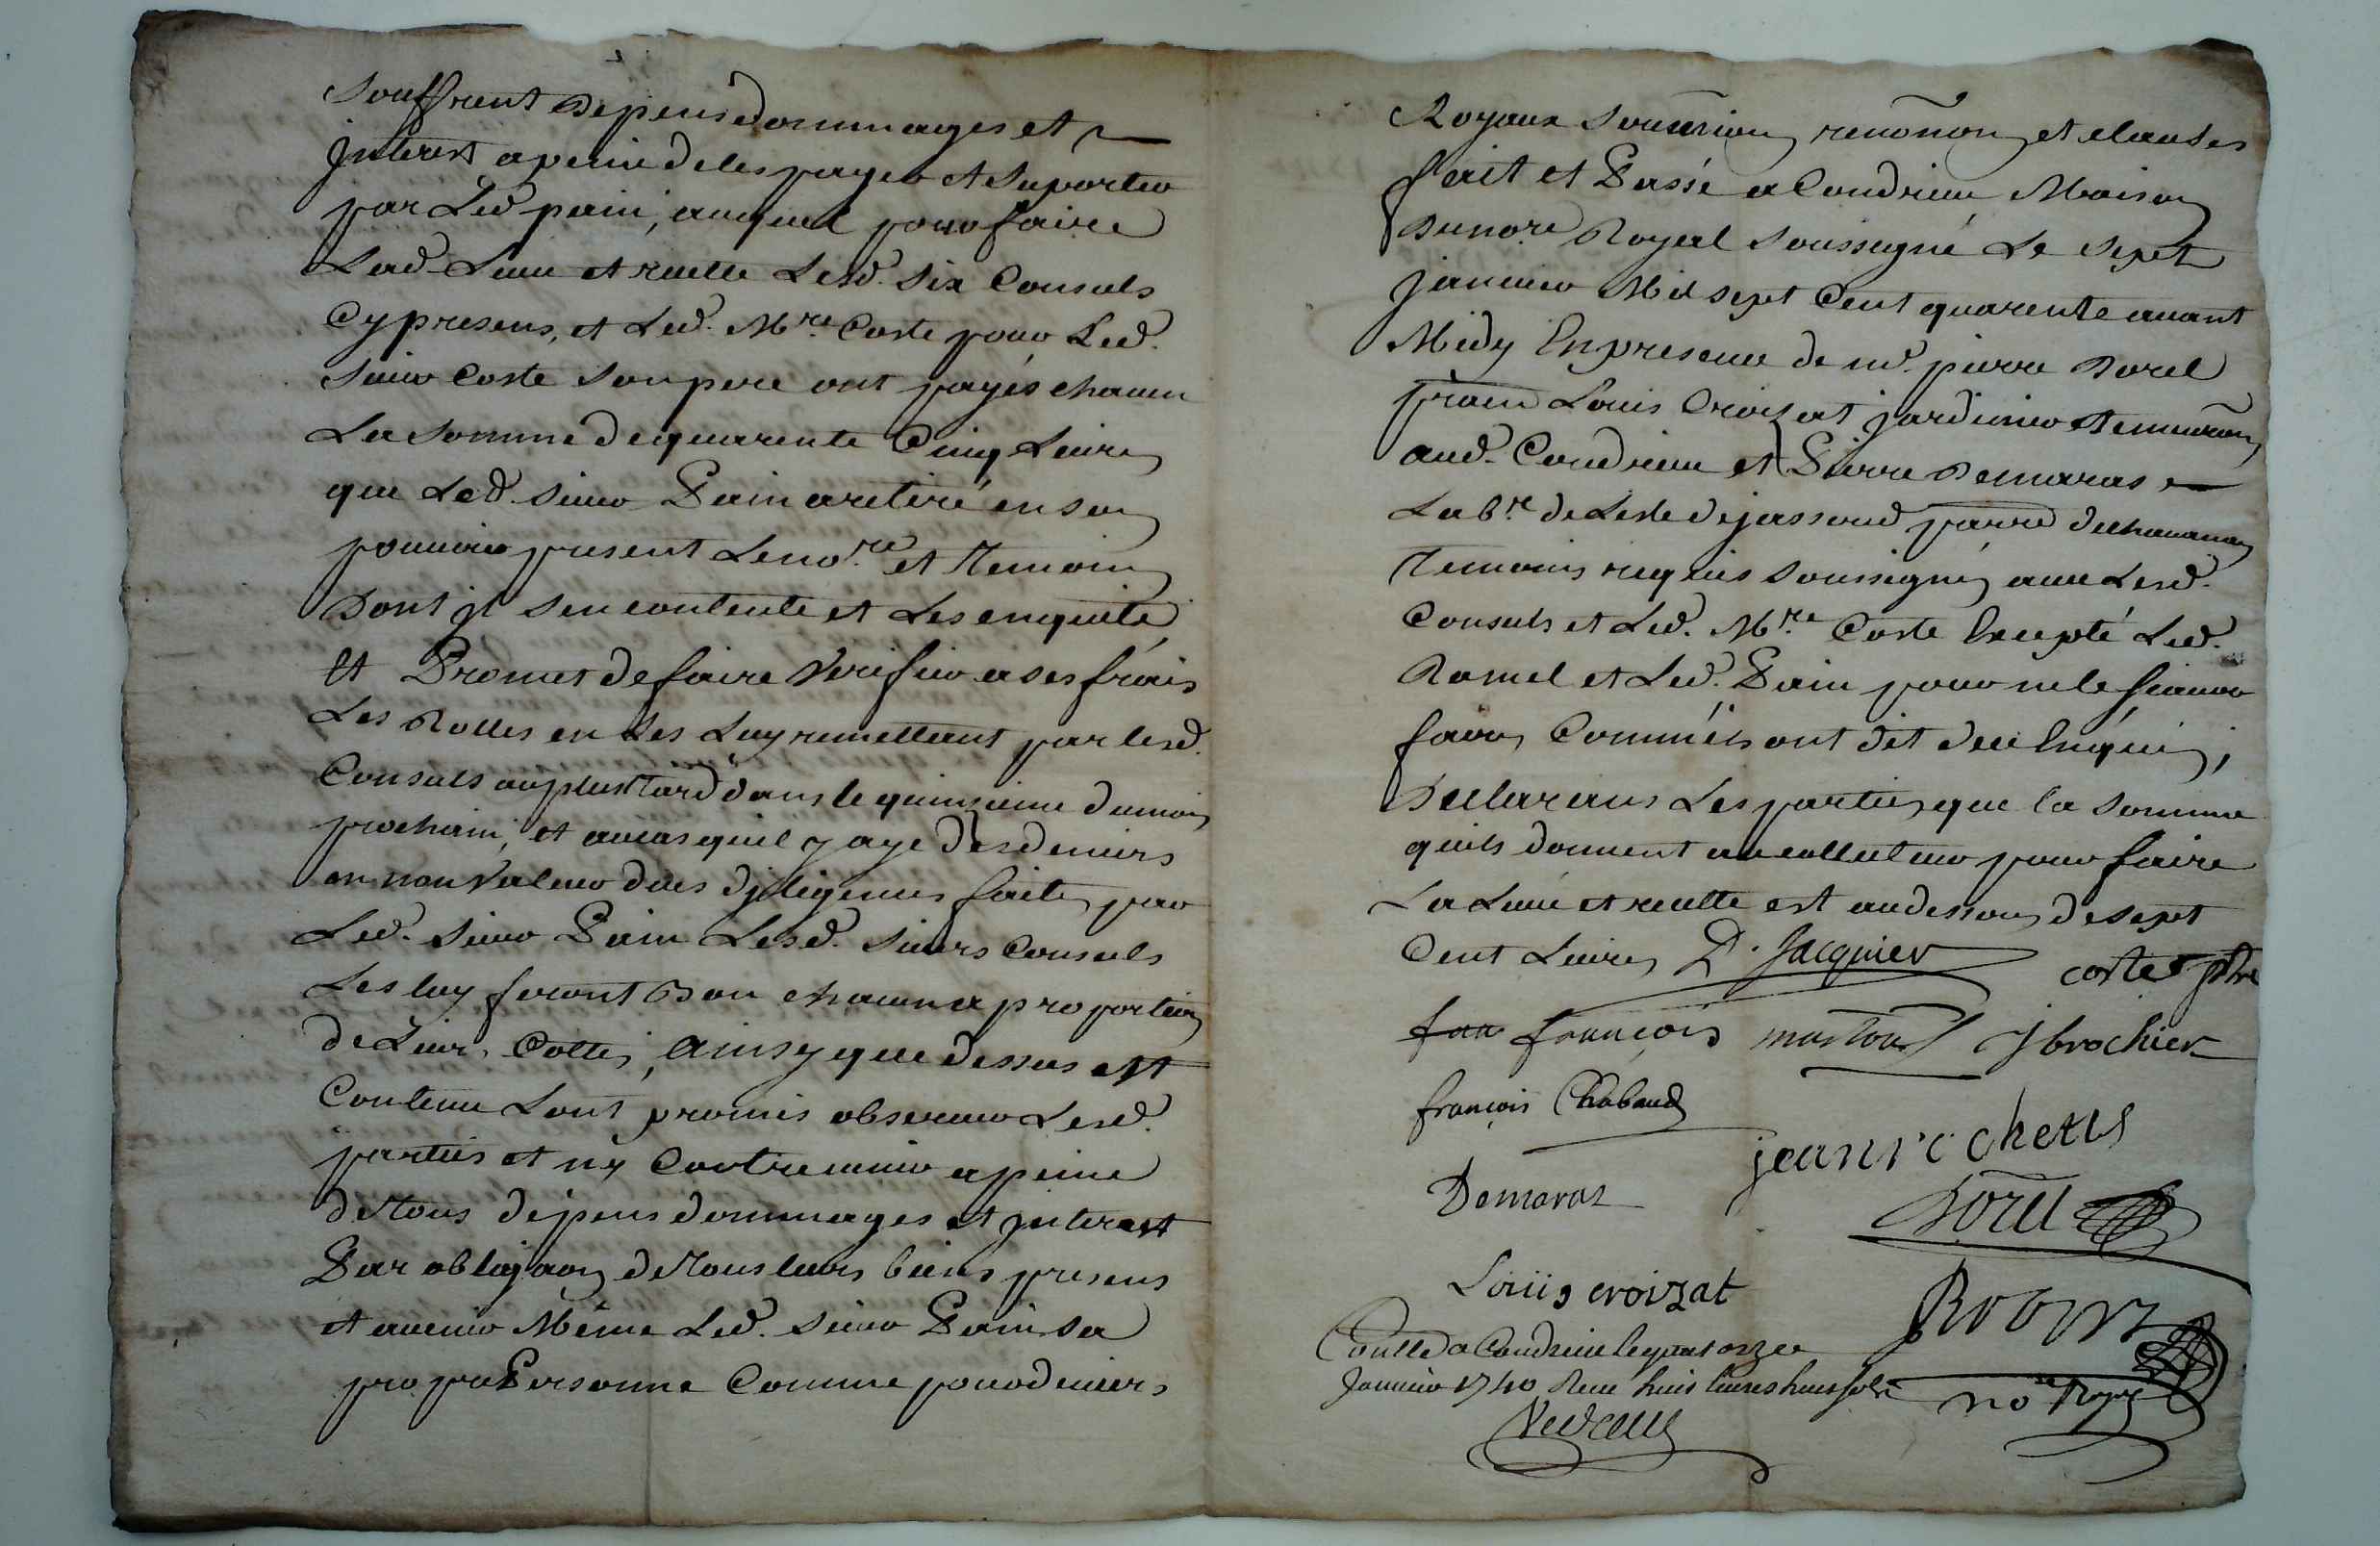 Souffrent depens dommages et
Interest a peine de les payer et suporter
par Led pain, auquel pour faire
Lad. Levée et recette Lesd. Six Consuls
Cy presens, et Led. Mre. Coste pour Led.
Sieur Coste Son pere ont payés chacun
La Somme de quarente Cinq Livres
que Led. Sieur Pain a retiré en son
pouvoir present Le nore. et Temoins
Dont jl s'en contente et Les en quite
Et Promet de faire Verifier a ses frais
Les Rolles en Les Luy remettant par lesd.
Consuls au plus tard dans le quinzieme du mois
prochain, et au cas quil y aye des deniers
en non Valeur dues djligences faites par
Led. Sieur Pain Lesd. Sieurs Consuls
Les luy feront Bon chacun a proportion
de Leurs Cottes, Ainsy que dessus est
Contenu L'ont promis observer Lesd.
parties et n'y Contrevenir a peine
de Tous depens dommages et jnterest
Par obligaon de Tous leurs biens presens
et avenir Même Led. Sieur Pain sa
propre Personne Comme pour deniers
Royaux Soumission renonon et clauses
fait et Passé a Condrieu Maison
du nore Royal Soussigné Le Sept
janvier Mil sept Cent quarente avant
Midy En presence de mr. pierre Borel
pratn Louis Croizat jardinier demeurans
aud. Condrieu et Pierre Demaras
Labr. de Leste de jassoud parre de chavanay
Temoins requis Soussignés avec Lesd.
Consuls et Led. Mre. Coste Excepté Led.
Ramel et Led. Pain pour ne le sçavoir
faire Comm'ils ont dit de ce Enquis,
Declarans Les parties que la Somme
quils donnent au collecteur pour faire
La Levée et recette est audessous de sept
Cent Livres P. Jacquier coste ptre
françois J brochier
françois Chabaud
jean rochette
Demaras
Borel
Louis croizat
Conllé a Condrieu le quatorze
Janvier 1740 Receu huis livres huis sols
no re Royal